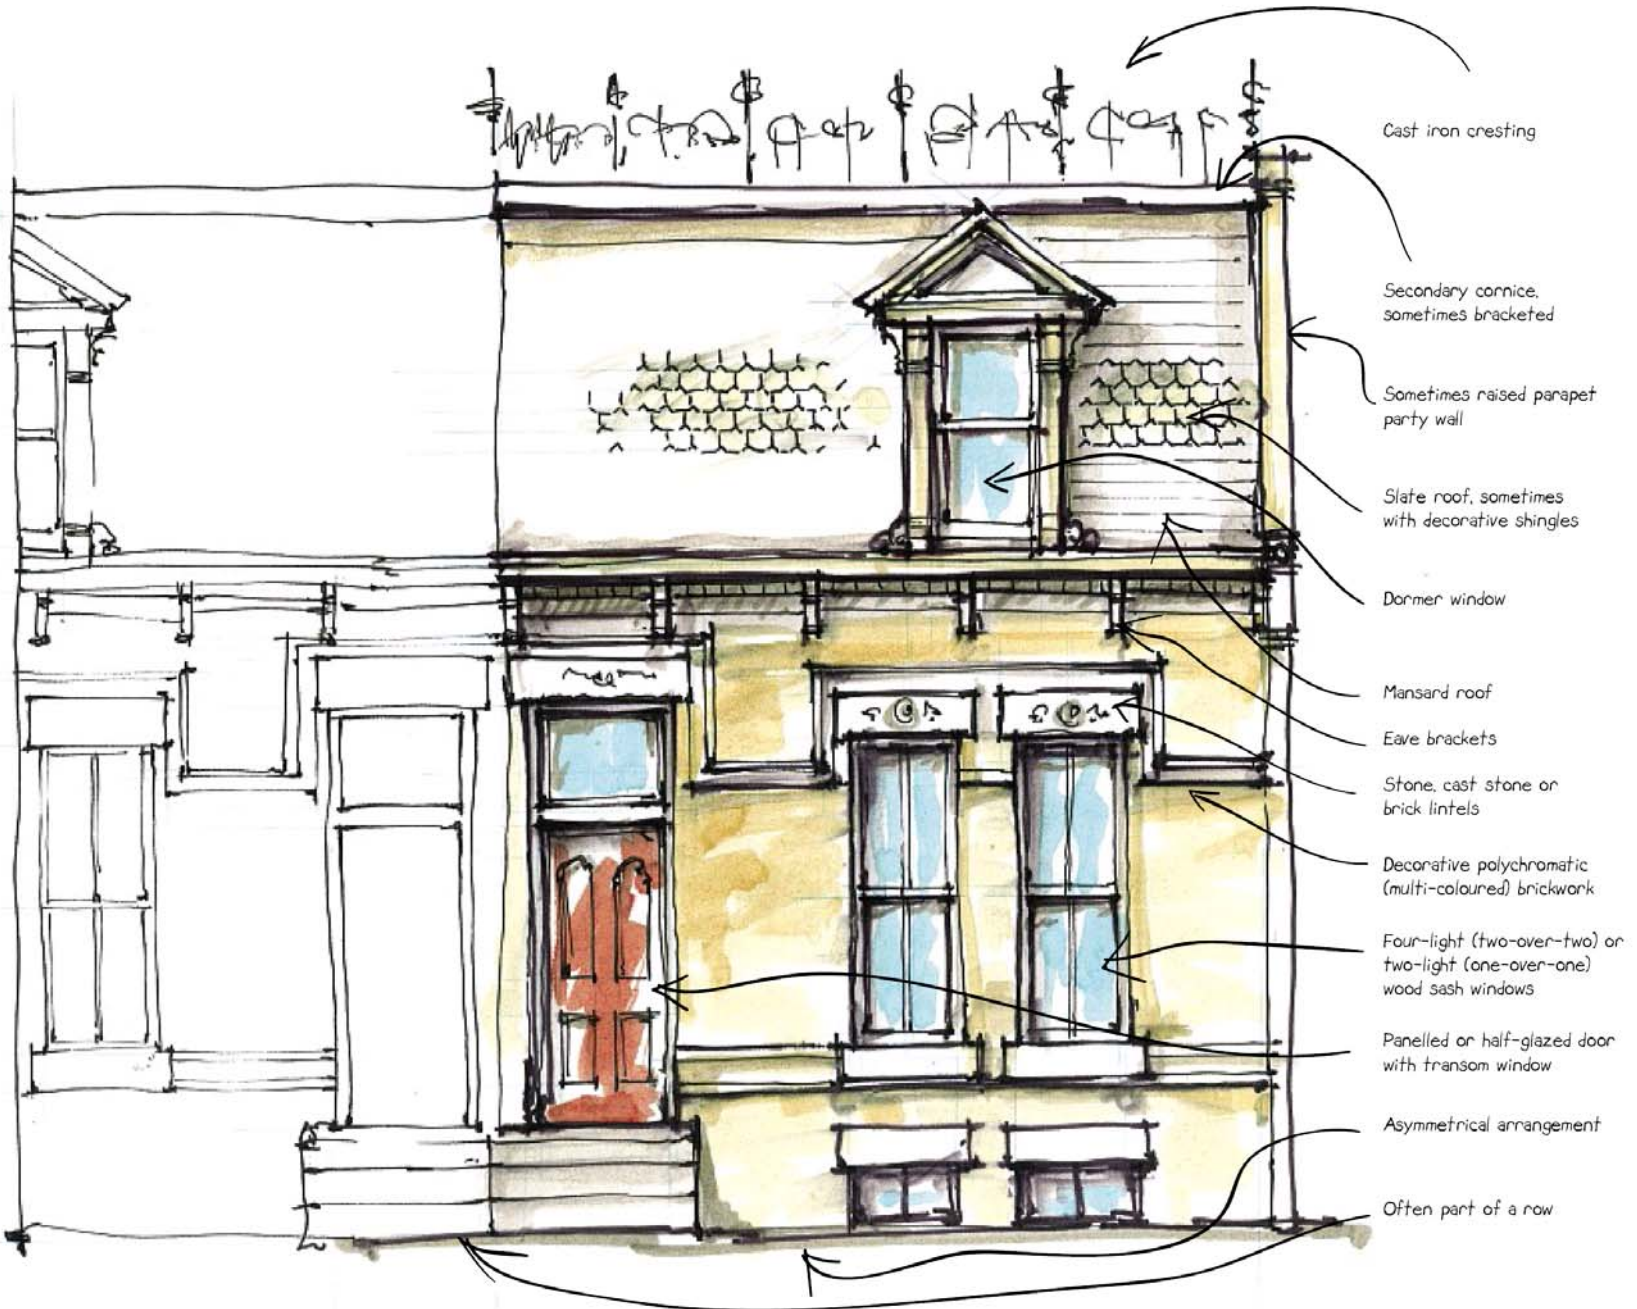 Cast iron cresting
Secondary cornice,
sometimes bracketed
Sometimes raised parapet
party wall
Slate roof, sometimes
with decorative shingles
Dormer window
Mansard roof
Eave brackets
Stone, cast stone or
brick lintels
Decorative polychromatic
(multi-coloured) brickwork
Four-light (two-over-two) or
two-light (one-over-one)
wood sash windows
Panelled or half-glazed door
with transom window
Asymmetrical arrangement
Often part of a row